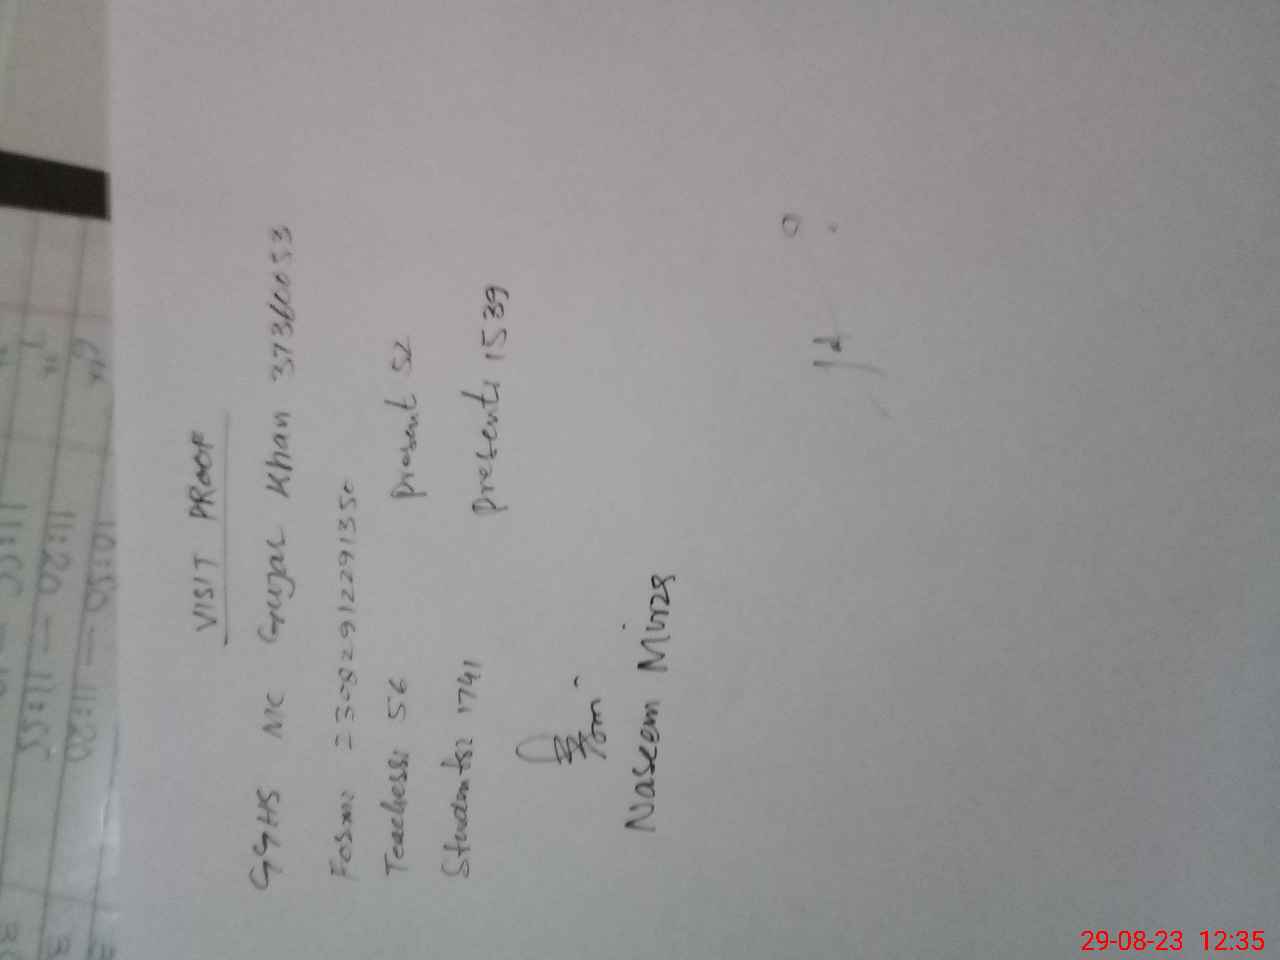 VISIT PROOF
GGHS NC Gujar Khan 37360053
Form: 230829122291350
Teachers: 56 present 52
Students: 1741 present: 1539
Naseem Mirza
10:50 — 11:20
11:20 — 11:55
29-08-23 12:35